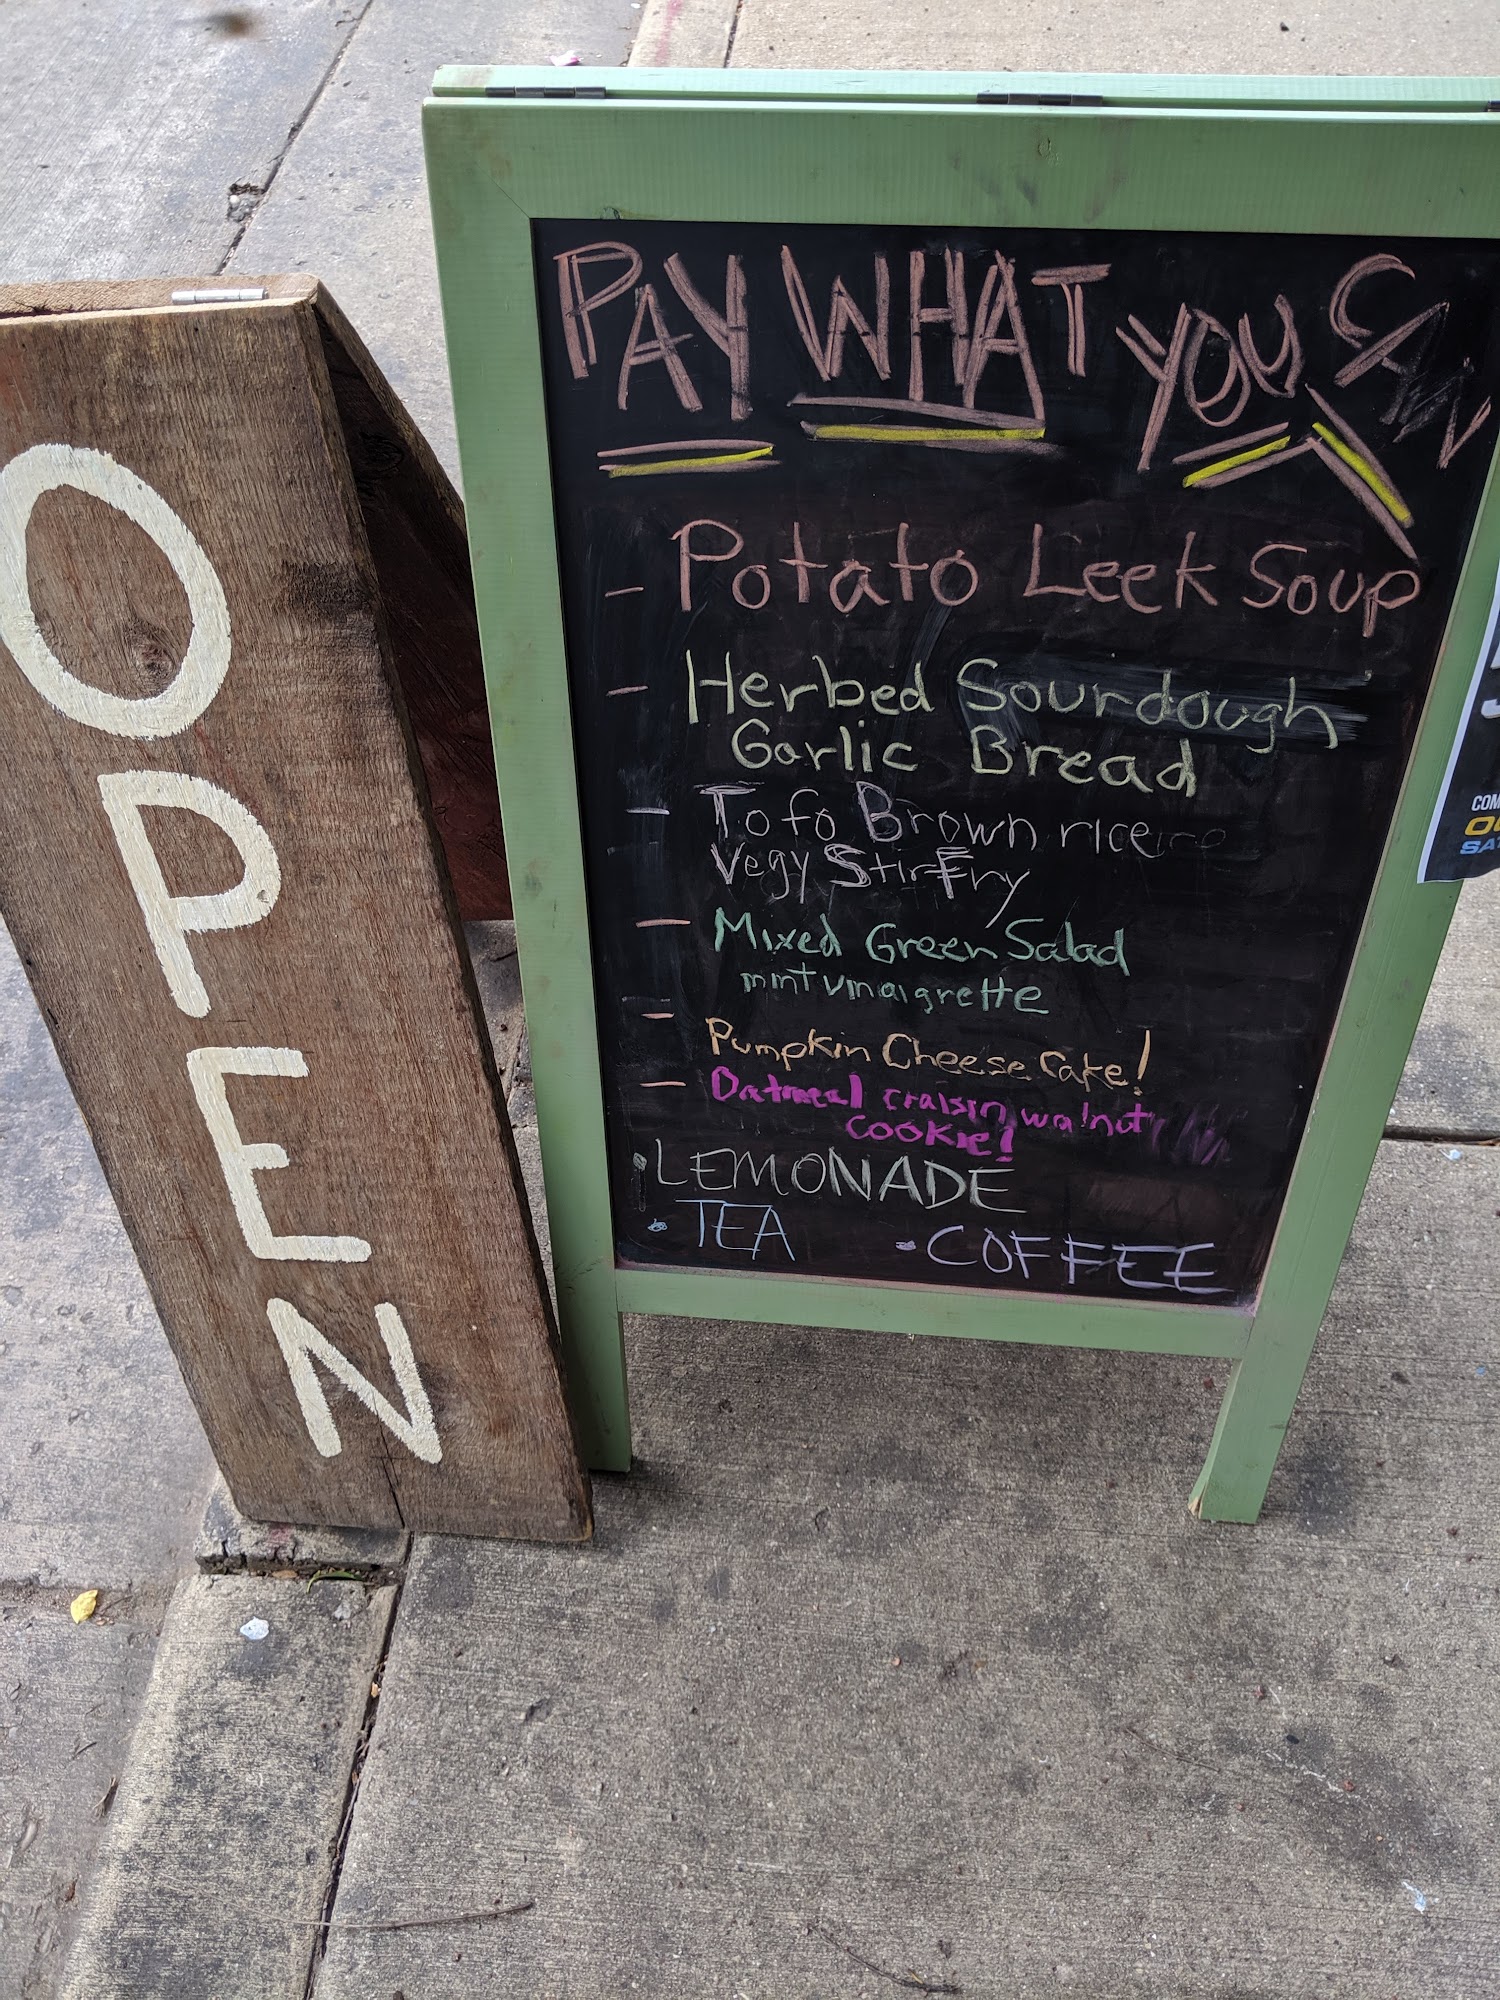 OPEN
PAY WHAT YOU CAN
- Potato Leek Soup
- Herbed Sourdough
Garlic Bread
- Tofo Brown rice
Vegy StirFry
- Mixed Green Salad
mint vinaigrette
- Pumpkin Cheese Cake!
- Oatmeal craisin walnut
cookie!
• LEMONADE
• TEA • COFFEE
COM
SAT